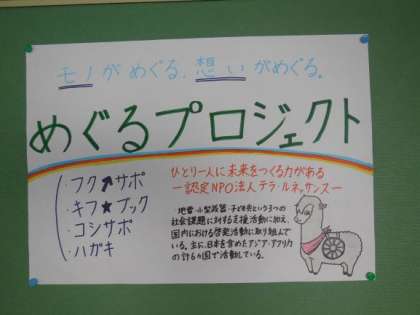 モノがめぐる、想いがめぐる。
めぐるプロジェクト
・フク↗サポ
・キフ★ブック
・コシサポ
・ハガキ
ひとり一人に未来をつくる力がある
ー認定NPO法人テラ・ルネッサンスー
地雷・小型武器・子ども兵という3つの
社会課題に対する支援活動に加え、
国内における啓発活動に取り組んで
いる。主に、日本を含めたアジア・アフリカ
の計6カ国で活動している。